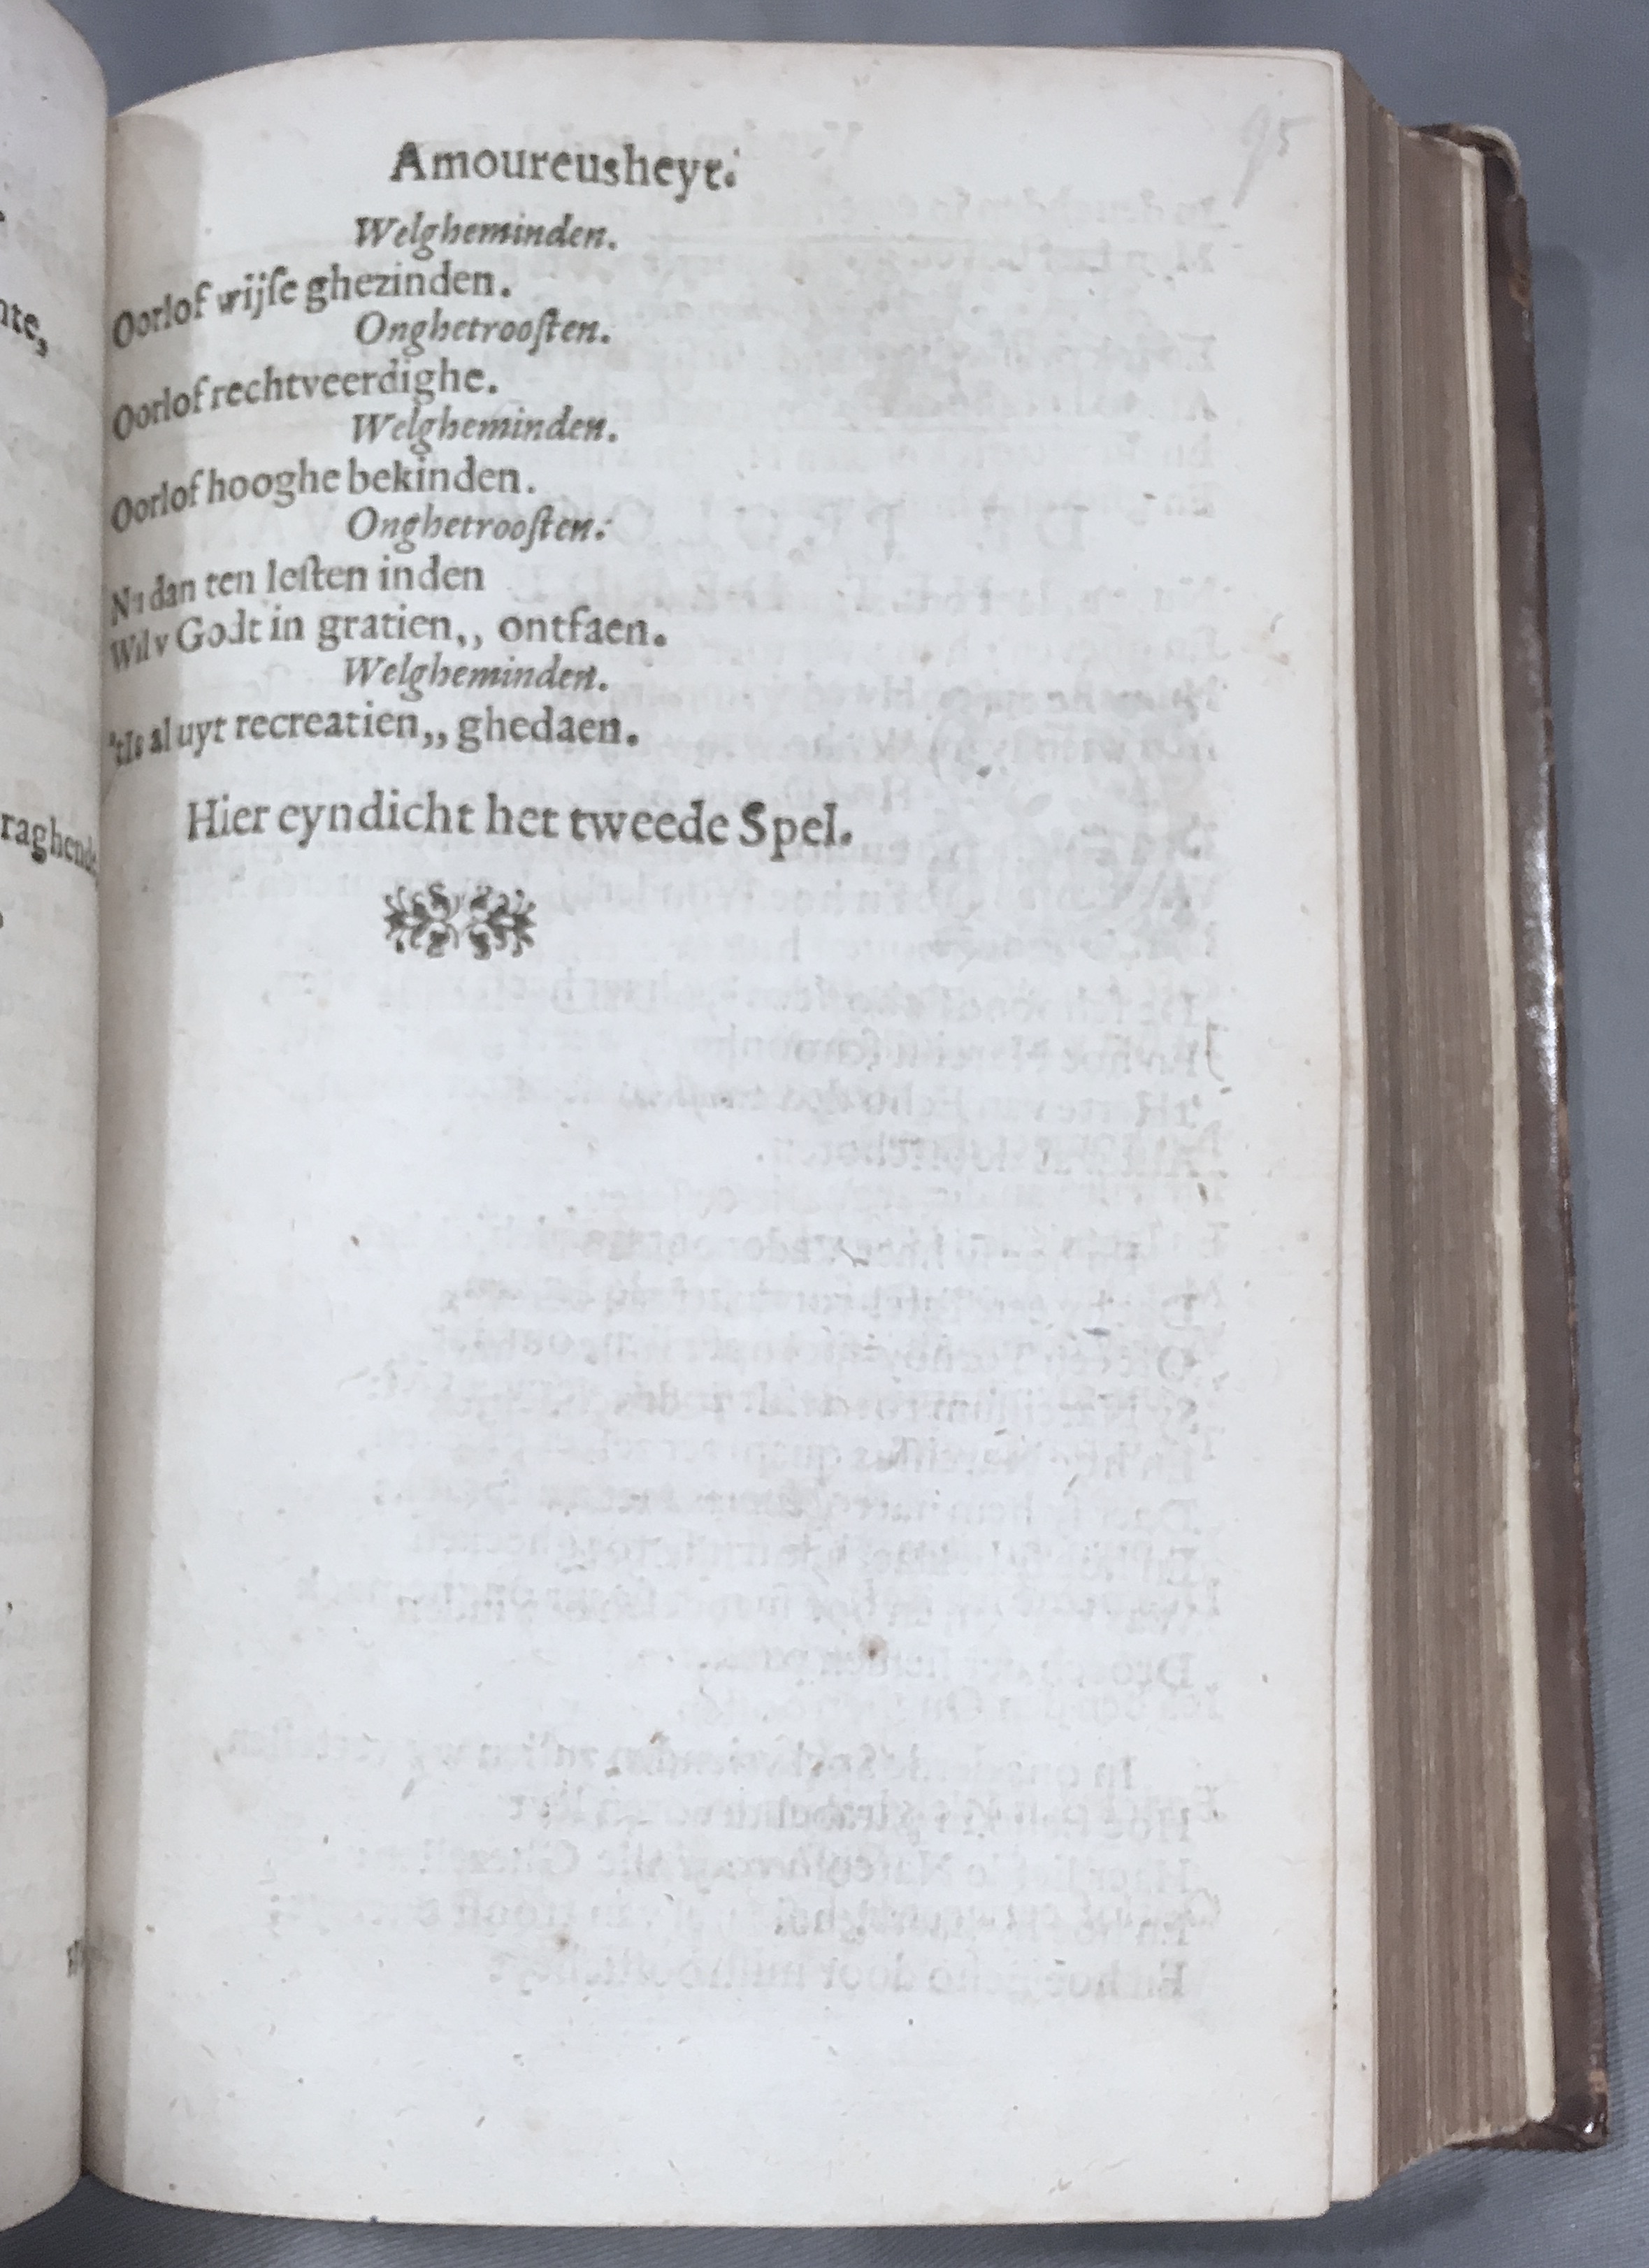 95
Amoureusheyt.
Welgheminden.
Oorlof wijſe ghezinden.
Onghetrooſten.
Oorlof rechtveerdighe.
Welgheminden.
Oorlof hooghe bekinden.
Onghetrooſten:
Nu dan ten leſten inden
Wil v Godt in gratien,, ontfaen.
Welgheminden.
'tIs al uyt recreatien,, ghedaen.
Hier eyndicht het tweede Spel.
nte,
raghende